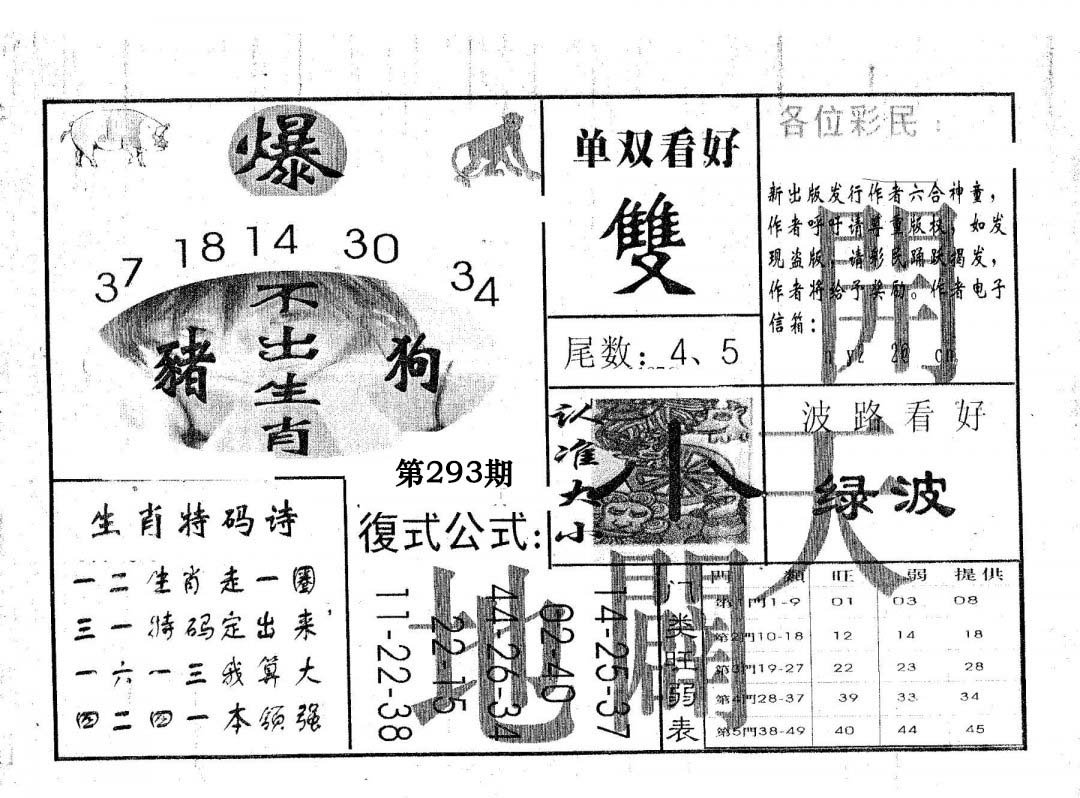 爆
37 18 14 30 34
不出生肖
豬
狗
第293期
单双看好
雙
尾数：4、5
各位彩民：
新出版发行作者六合神童，
作者呼吁请尊重版权，如发
现盗版，请彩民踊跃揭发，
作者将给予奖励。作者电子
信箱：
认准大小
小
波路看好
绿波
開天
闢地
生肖特码诗
一二生肖走一圈
三一特码定出来
一六一三我算大
四二四一本领强
復式公式:
11-22-38
22-15
44-26-34
02-40
14-25-37
门类旺弱表
門 類 旺 弱 提供
第1門1-9 01 03 08
第2門10-18 12 14 18
第3門19-27 22 23 28
第4門28-37 39 33 34
第5門38-49 40 44 45